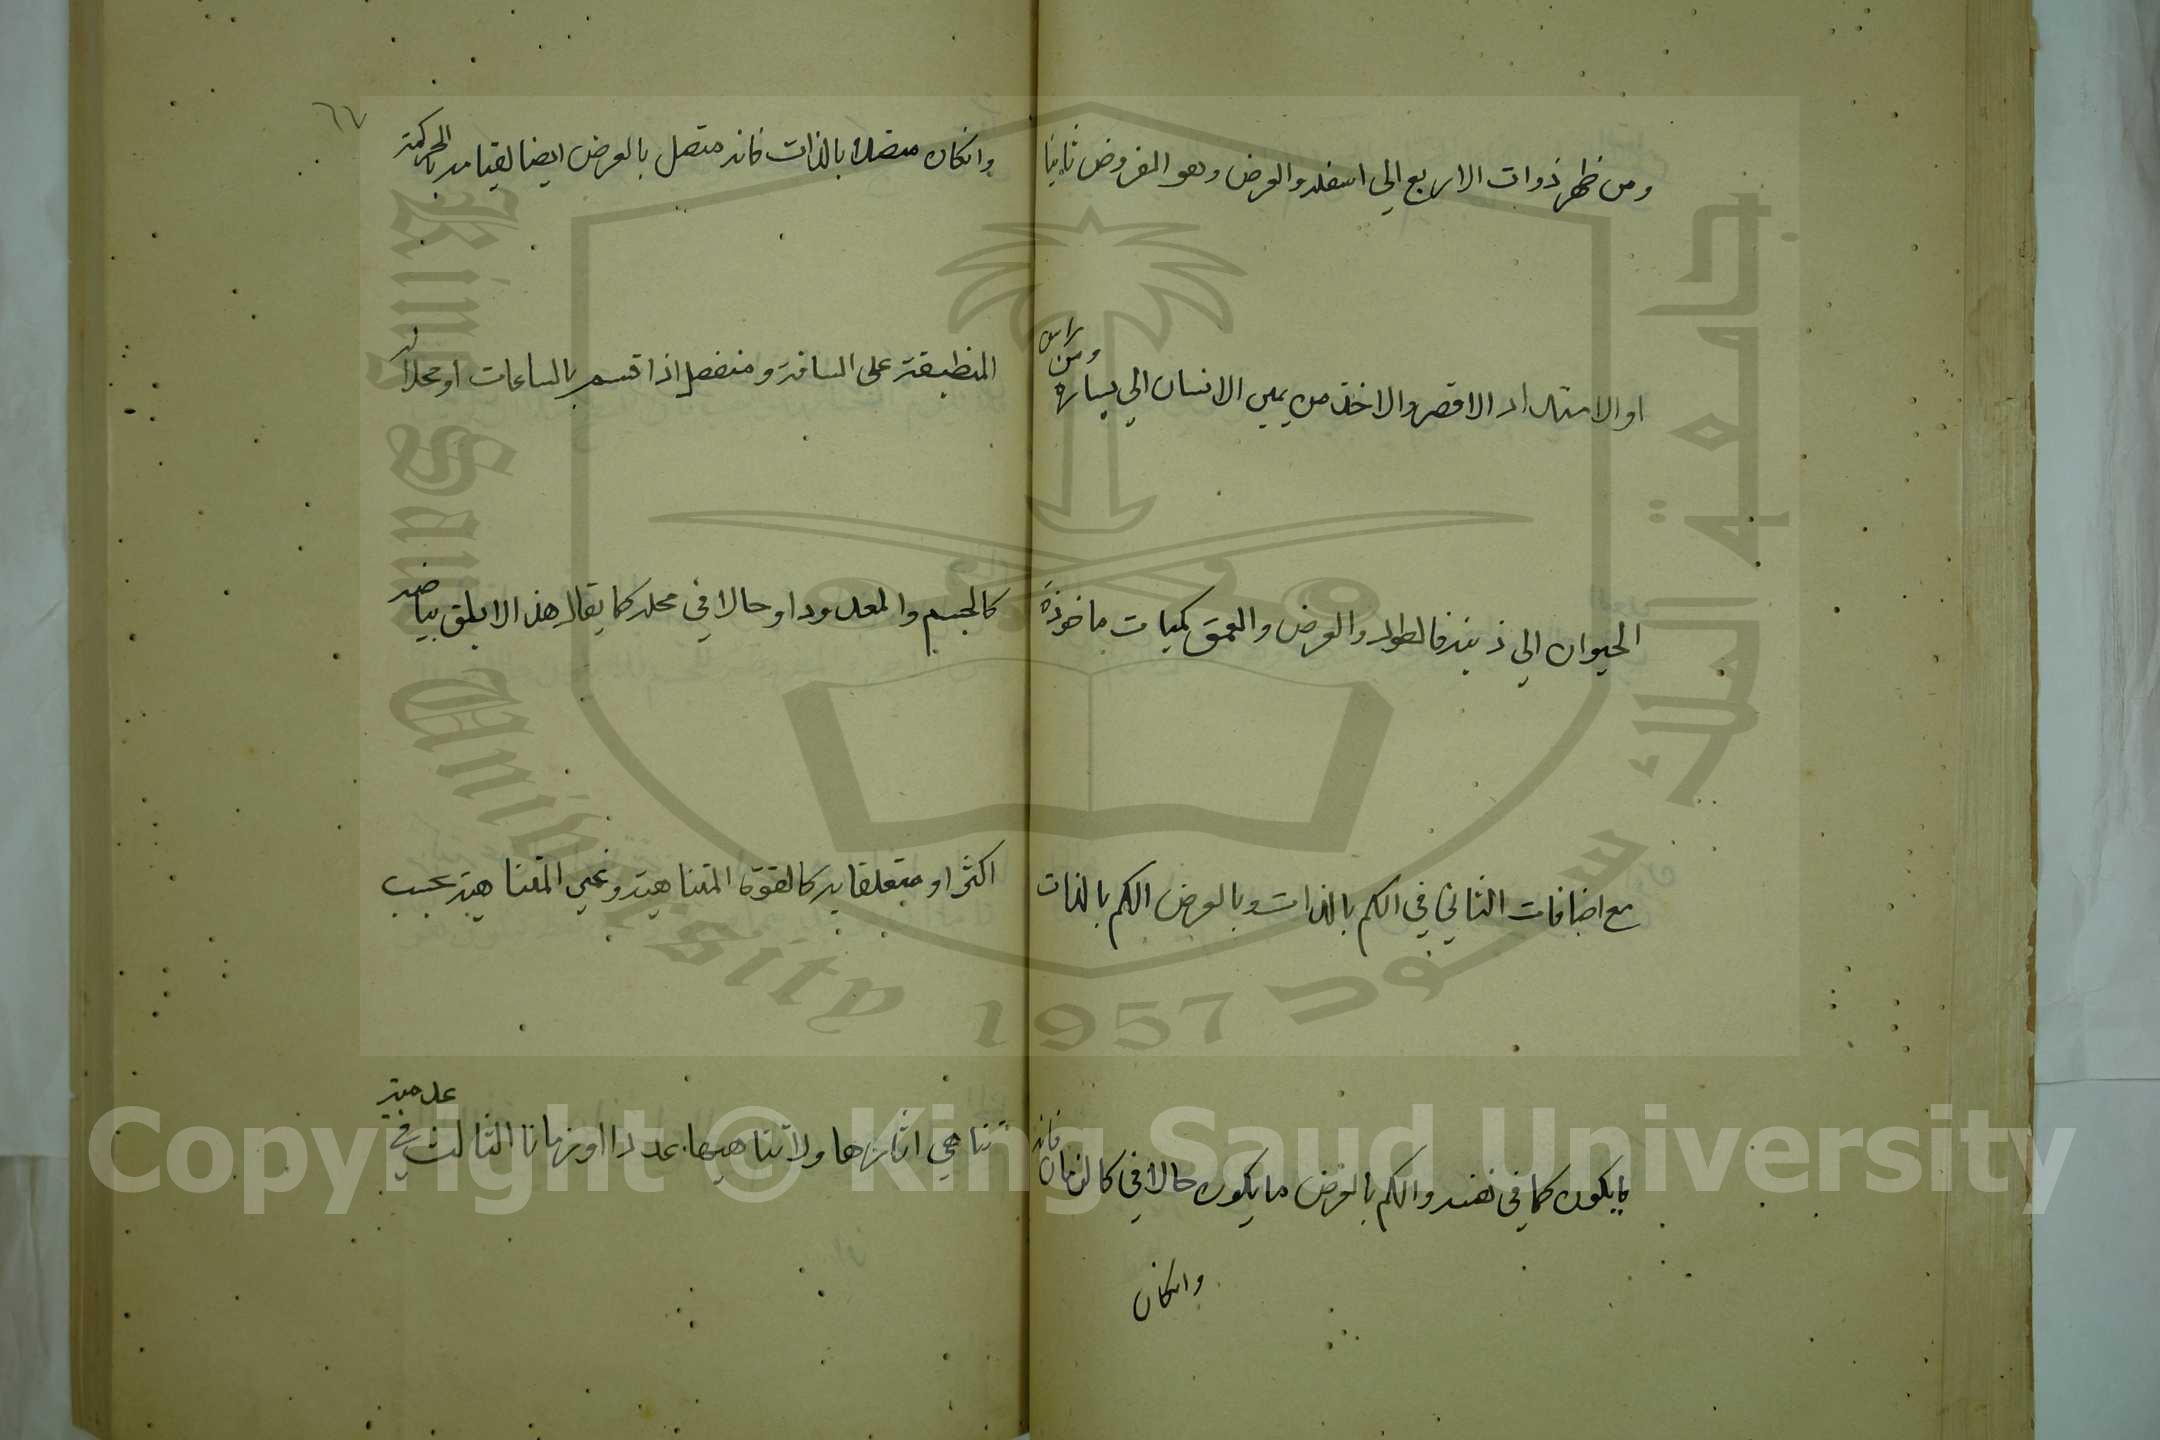 ومن ظهر ذوات الاربع الي اسفله والعرض وهو المفروض ثانيا
او الامتداد الاقصر والاخذ من يمين الانسان الي يساره ومن راس
الحيوان الي ذنبه فالطول والعرض والعمق كميات ماخوذة
مع اضافات الثاني في الكم بالذات وبالعرض الكم بالذات
ما يكون كما في نفسه والكم بالعرض ما يكون حالا في كالزمان فانه
وانكان
٦٧
وانكان متصلا بالذات فانه متصل بالعرض ايضا لقيامه بالحركة
المنطبقة على المسافة ومنفصل اذا قسم بالساعات او محلا له
كالجسم والمعدود او حالا في محله كما يقال هذا الابلق بياضه
اكثر او متعلقا به كالقوة المتناهية وغير المتناهية بحسب
تناهي اثارها ولا تناهيها عددا او زمانا الثالث في عدمية
جامعة الملك سعود
King Saud University 1957
Copyright © King Saud University